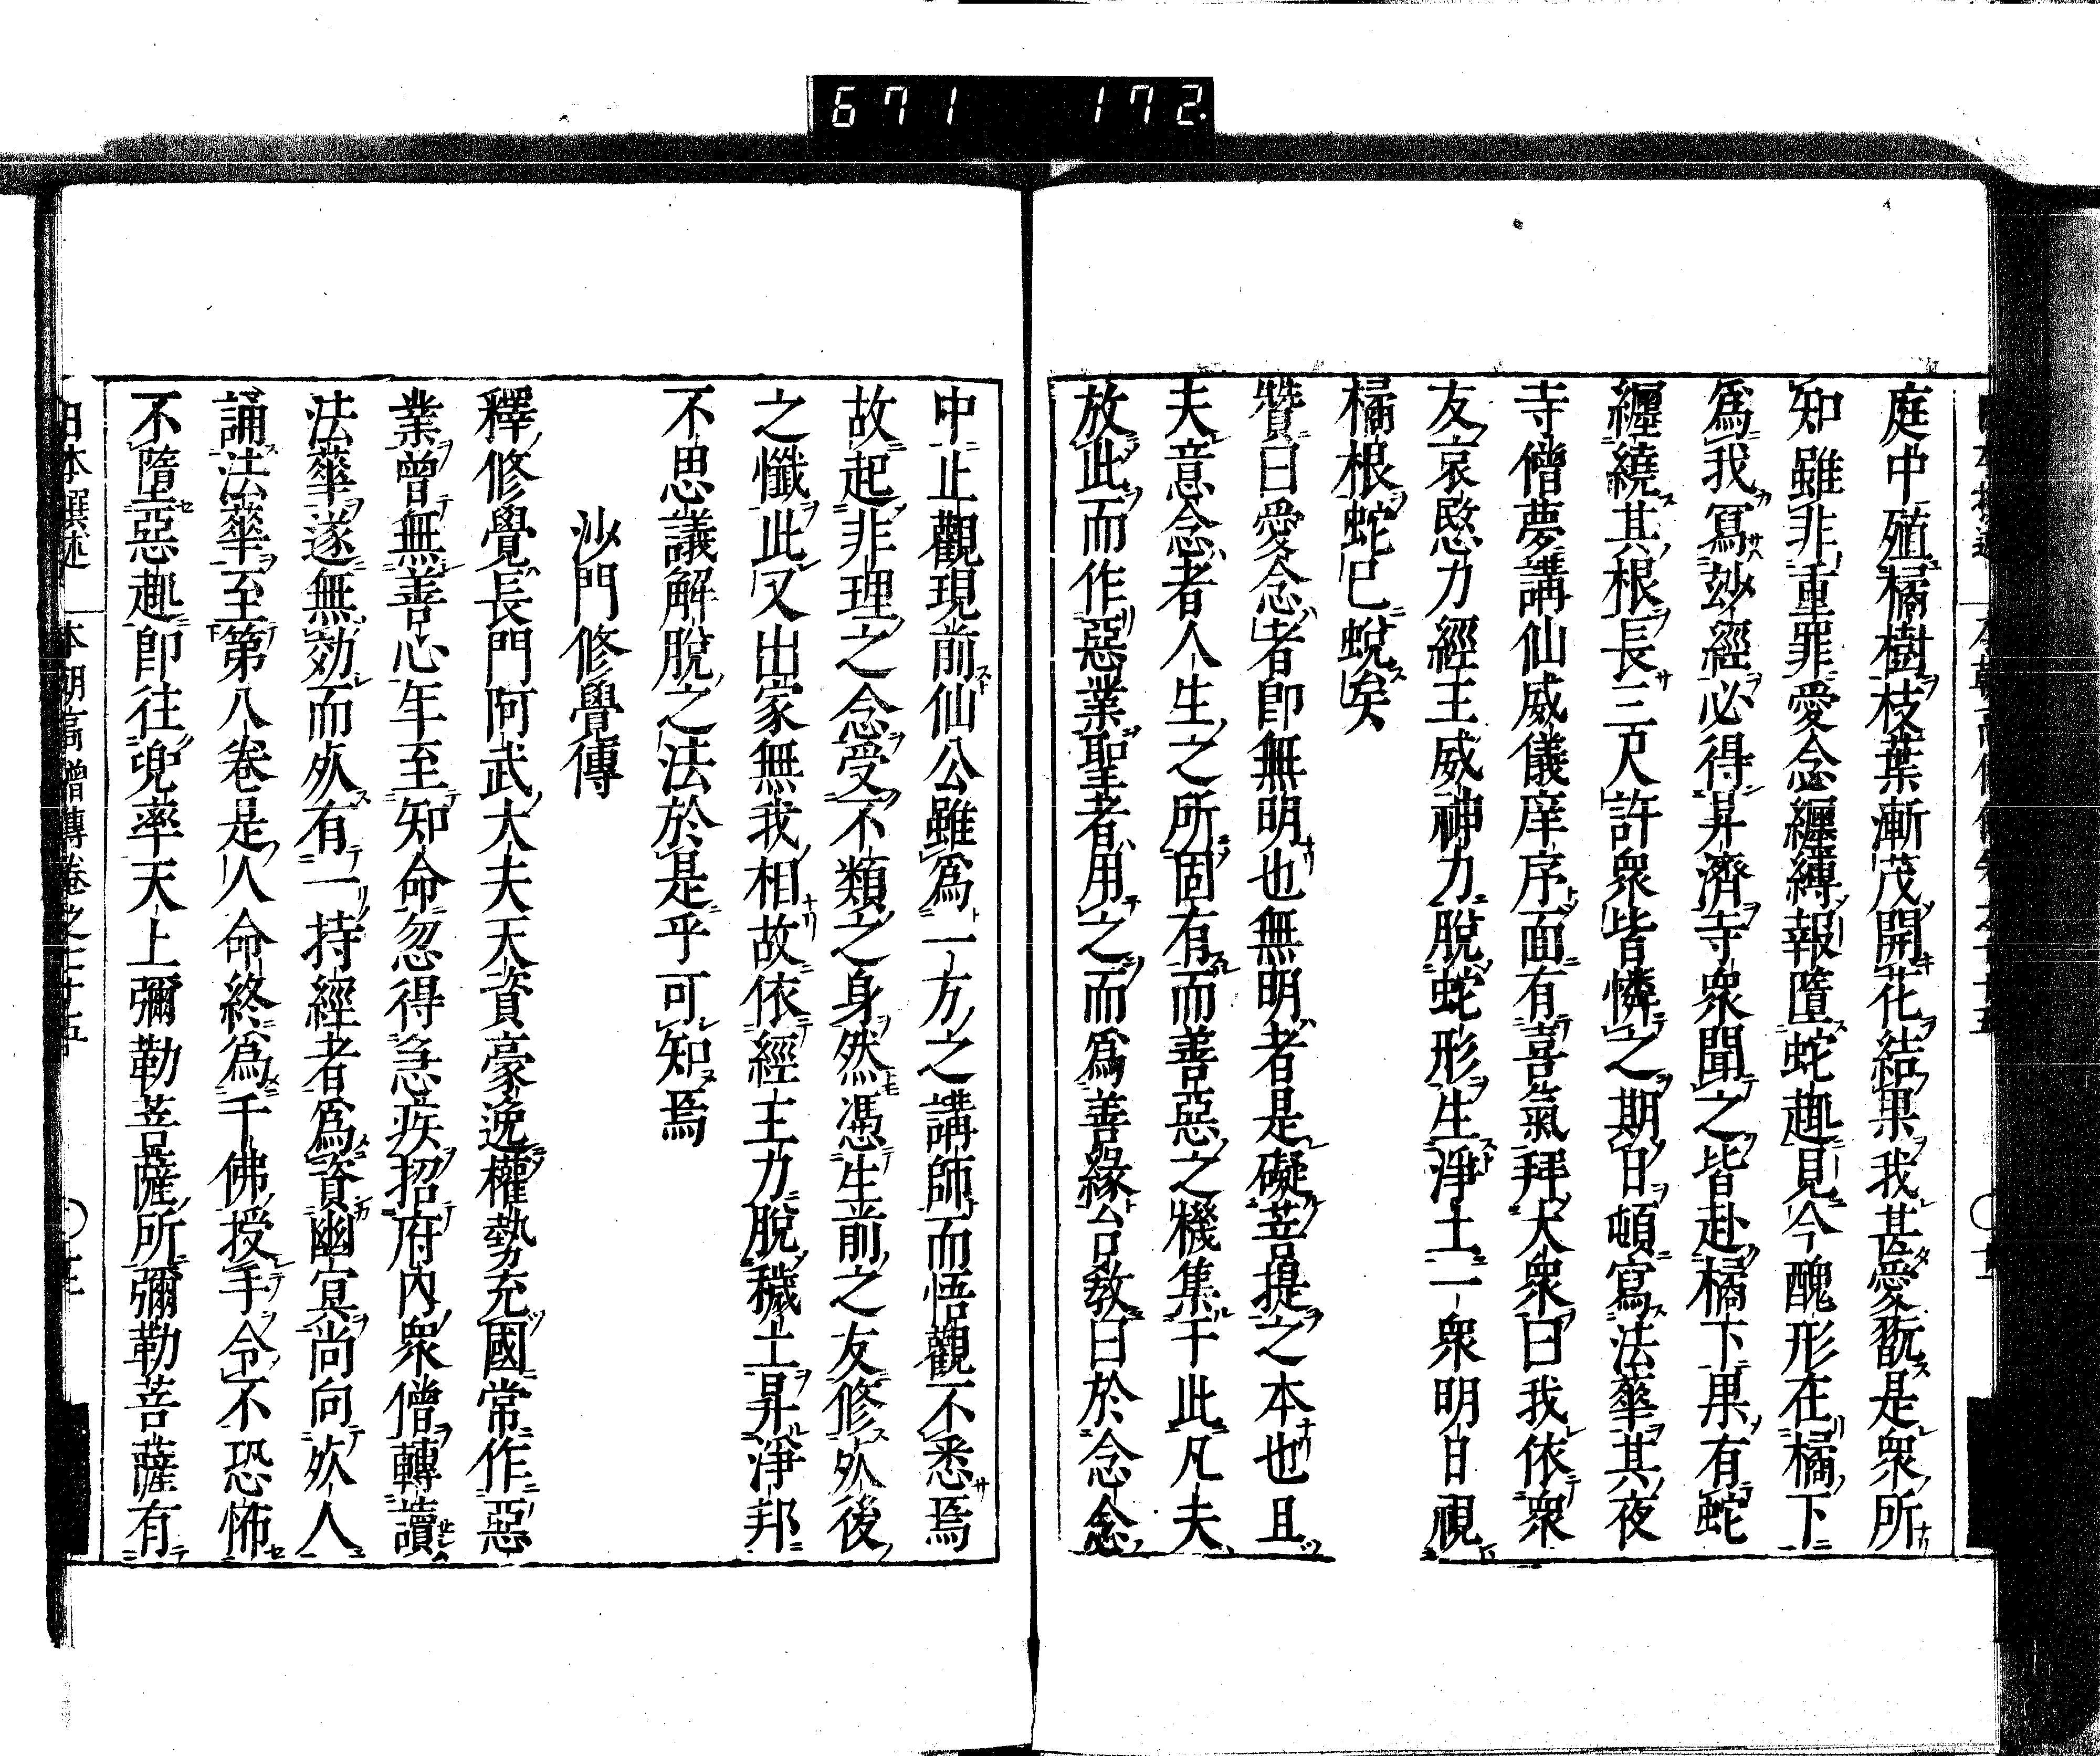 671 172.
庭中殖橘樹枝葉漸茂開花結果我甚愛翫是衆所
知雖非重罪愛念纏縛報墮蛇趣見今醜形在橘下
爲我寫玅經必得昇濟寺衆聞之皆赴橘下果有蛇
纏繞其根長三尺許衆皆憐之期日頓寫法華其夜
寺僧夢講仙威儀庠序面有喜氣拜大衆曰我依衆
友哀愍力經王威神力脫蛇形生淨土一衆明日視
橘根蛇已蛻矣
贊曰愛念者卽無明也無明者是礙菩提之本也且
夫意念者人生之所固有而善惡之機集于此凡夫
放此而作惡業聖者用之而爲善緣台教曰於念念
中止觀現前仙公雖爲一方之講師而悟觀不悉焉
故起非理之念受不類之身然憑生前之友修死後
之懺此又出家無我相故依經王力脫穢土昇淨邦
不思議解脫之法於是乎可知焉
沙門修覺傳
釋修覺長門阿武大夫天資豪逸權勢充國常作惡
業曾無善心年至知命忽得急疾招府內衆僧轉讀
法華遂無効而死有一持經者爲資幽冥尚向死人
誦法華至第八卷是人命終爲千佛授手令不恐怖
不墮惡趣卽往兜率天上彌勒菩薩所彌勒菩薩有
日本撰述 本朝高僧傳卷之七十五